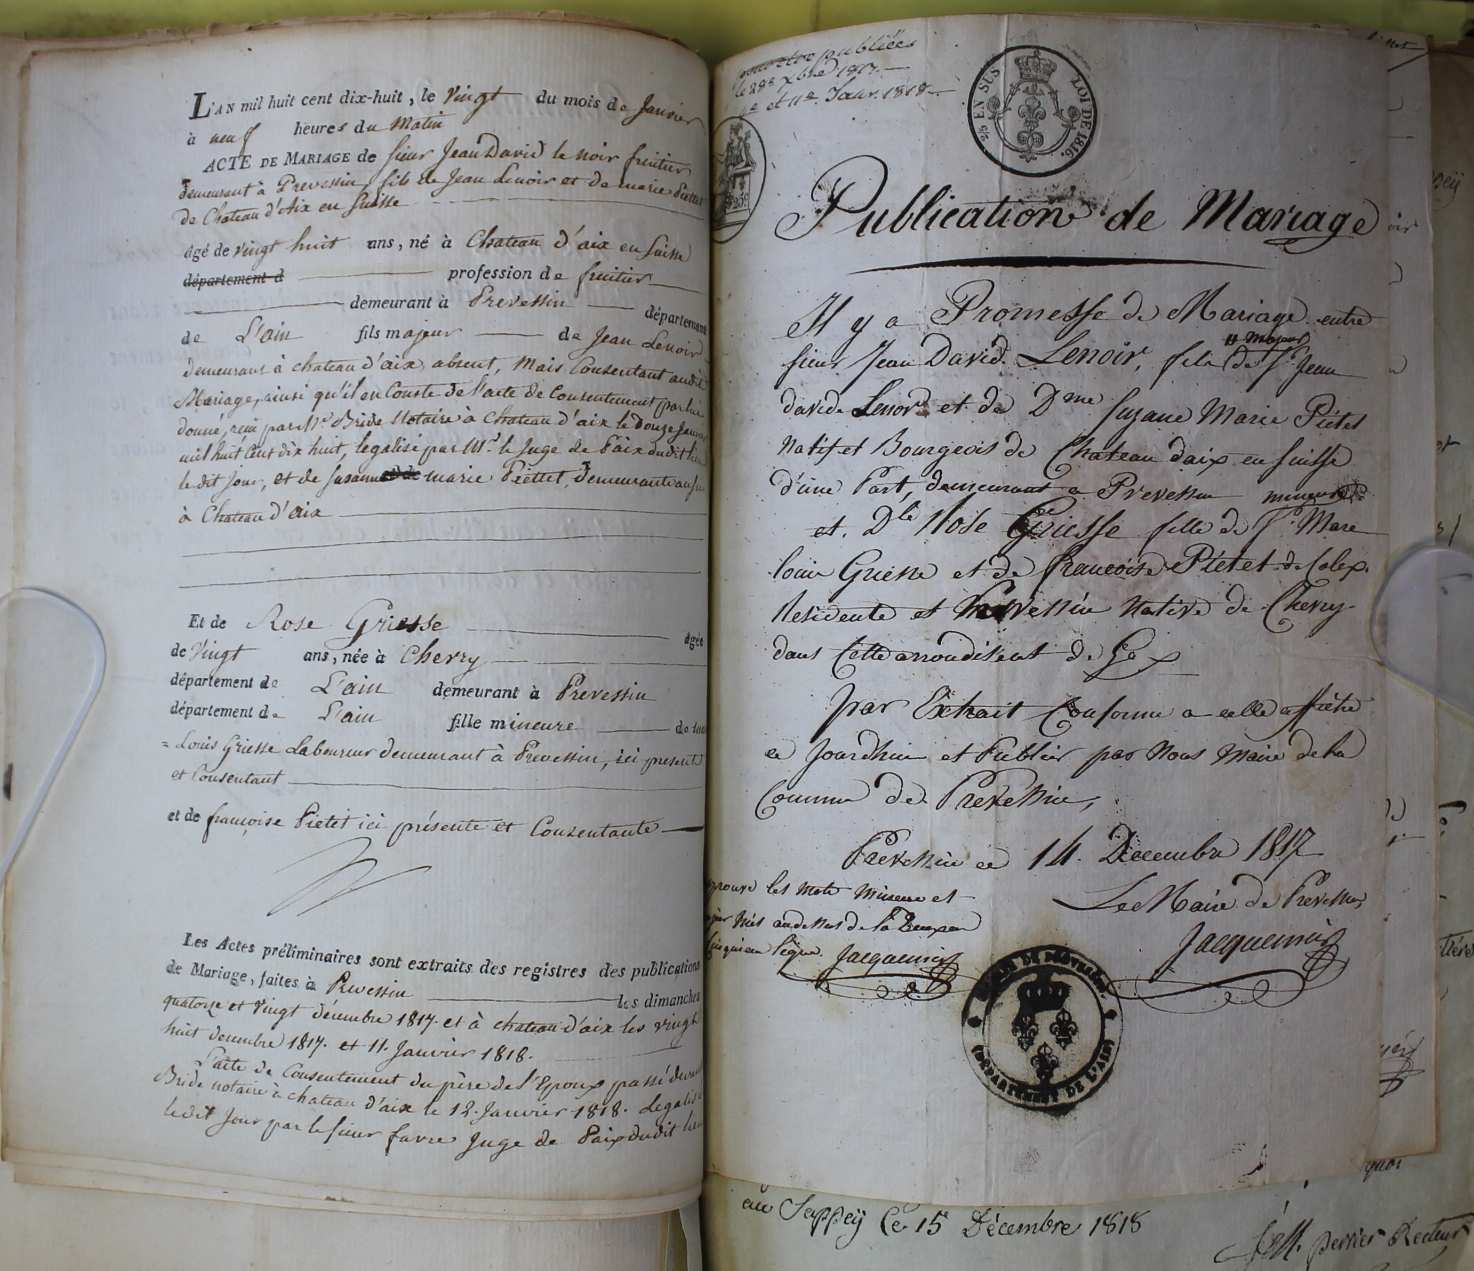 L'AN mil huit cent dix-huit, le Vingt du mois de Janvier
à neuf heures du Matin
ACTE DE MARIAGE de sieur Jean David le noir fruitier
demeurant à Prevessin, fils de Jean Lenoir et de marie Piettet
de Chateau d'Aix en Suisse
âgé de vingt huit ans, né à Chateau d'aix en Suisse
département d profession de fruitier
demeurant à Prevessin département
de L'ain fils majeur de Jean Lenoir
demeurant à chateau d'aix absent, mais Consentant audit
Mariage, ainsi qu'il en Conste de l'acte de Consentement par lui
donné, reçu par Me Bride Notaire à Chateau d'aix le Douze Janvier
mil huit Cent dix huit, legalisé par Mr. le Juge de Paix dudit lieu
le dit Jour, et de Susanne et de marie Piettet, Demeurante aussi
à Chateau d'aix
Et de Rose Griesse agée
de Vingt ans, née à Cherry
département de L'ain demeurant à Prevessin
département de L'ain fille mineure de
Louis Griesse Laboureur demeurant à Prevessin, ici present
et Consentant
et de françoise Pietet ici présente et Consentante
Les Actes préliminaires sont extraits des registres des publications
de Mariage, faites à Prevessin les dimanches
quatorze et Vingt décembre 1817. et à chateau d'aix les vingt
huit decembre 1817. et 11. Janvier 1818.
L'acte de Consentement du père de l'Epoux passé devant
Bride notaire à chateau d'aix le 12. Janvier 1818. Legalisé
le dit Jour par le sieur favre Juge de Paix dudit lieu
publiées
le 28e Xbre 1817.
et 11e. Janv. 1818
25 EN SUS LOI DE 1816.
25c
Publication de Mariage
Il y a Promesse de Mariage entre
majeur
sieur Jean David Lenoir, fils de Sr Jean
david Lenoir et de Dme Suzane Marie Piétet
Natif et Bourgeois de Chateau daix en suisse
d'une Part, demeurant a Prevessin mineure
et. Dle Rose Griesse fille de Sr. Marc
louis Griesse et de francoise Piétet de Colex.
Residente et Prevessin Native de Chevry
dans Cette arrondisent de Gex
par Extrait Conforme a celle affiche
ce Jourdhui et Publier par Nous Maire de la
Commune de Prevessin,
Prevessin ce 14. Decembre 1817
Le Maire de Prevessin
Jacquemier
les mots mineure et
mis audessus de la
ligne. Jacquemier
MAIRIE DE PREVESSIN.
(DÉPARTEMENT DE L'AIN)
au Sappey Ce 15 Décembre 1818
perrier Recteur